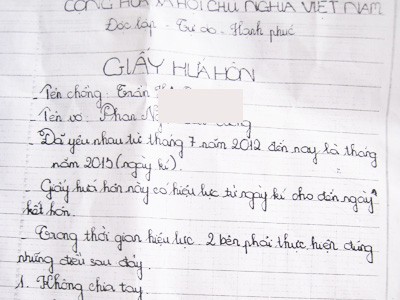 CỘNG HÒA XÃ HỘI CHỦ NGHĨA VIỆT NAM
Độc lập - Tự do - Hạnh phúc
GIẤY HỨA HÔN
- Tên chồng: Trần
- Tên vợ: Phan
- Đã yêu nhau từ tháng 7 năm 2012 đến nay là tháng
năm 2015 (ngày kí).
- Giấy hứa hôn này có hiệu lực từ ngày kí cho đến ngày
kết hôn.
- Trong thời gian hiệu lực 2 bên phải thực hiện đúng
những điều sau đây.
1. Không chia tay.